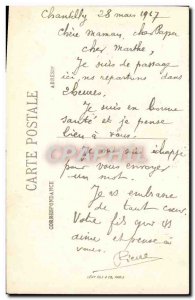 Chantilly 28 mars 1917
Chère Maman, cher Papa
cher Marthe,
Je suis de passage
ici ns repartons dans
2 heures,
Je suis en bonne
santé et je pense
bien à vous.
Je me suis échappé
pour vous envoyer
un mot.
Je vs embrasse
de tout coeur.
Votre fils qui vs
aime et pense à
vous.
Pierre
CARTE POSTALE
CORRESPONDANCE
ADRESSE